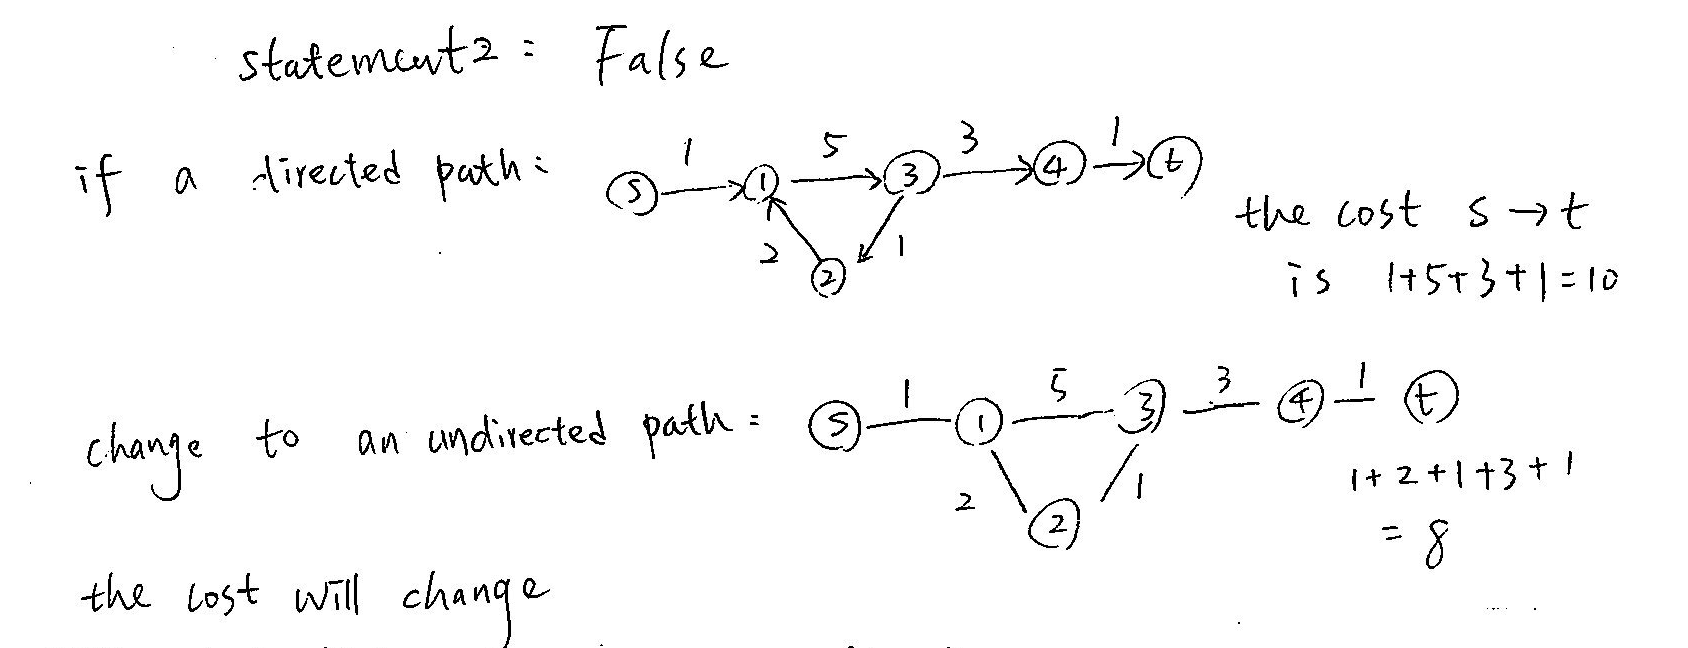 statement2: False
if a directed path:
S 1 1 5 3 3 4 1 t
2 2 1
the cost s → t
is 1+5+3+1=10
change to an undirected path:
S 1 1 5 3 3 4 1 t
2 2 1
1+2+1+3+1
= 8
the cost will change